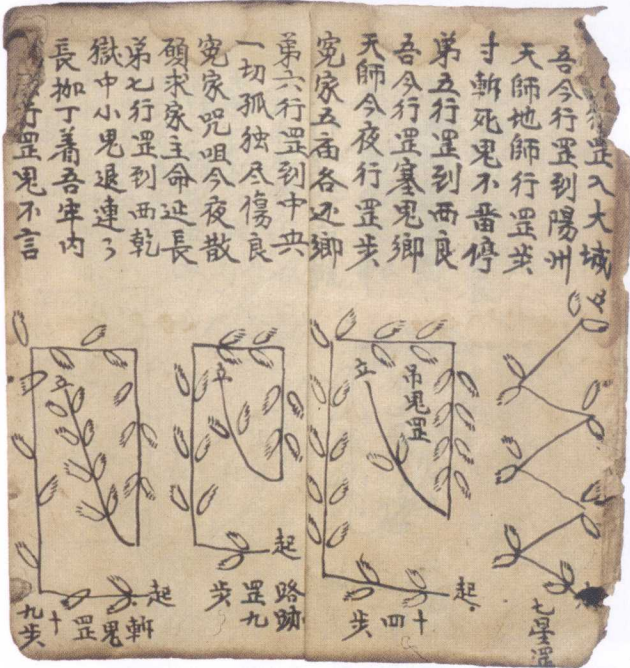 罡入大城
吾今行罡到陽州
天師地師行罡步
寸斬死鬼不畱停
第五行罡到西良
吾今行罡塞鬼鄉
天師今夜行罡步
寃家五庙各还鄉
第六行罡到中央
一切孤独尽傷良
寃家咒咀今夜散
願求家主命延長
第七行罡到西乾
獄中小鬼退連々
長枷丁着吾牢内
行罡鬼不言
七星罡
吊鬼罡
立
起
十四步
立
起
路跡
罡九
步
立
起
斬鬼
罡十
九步